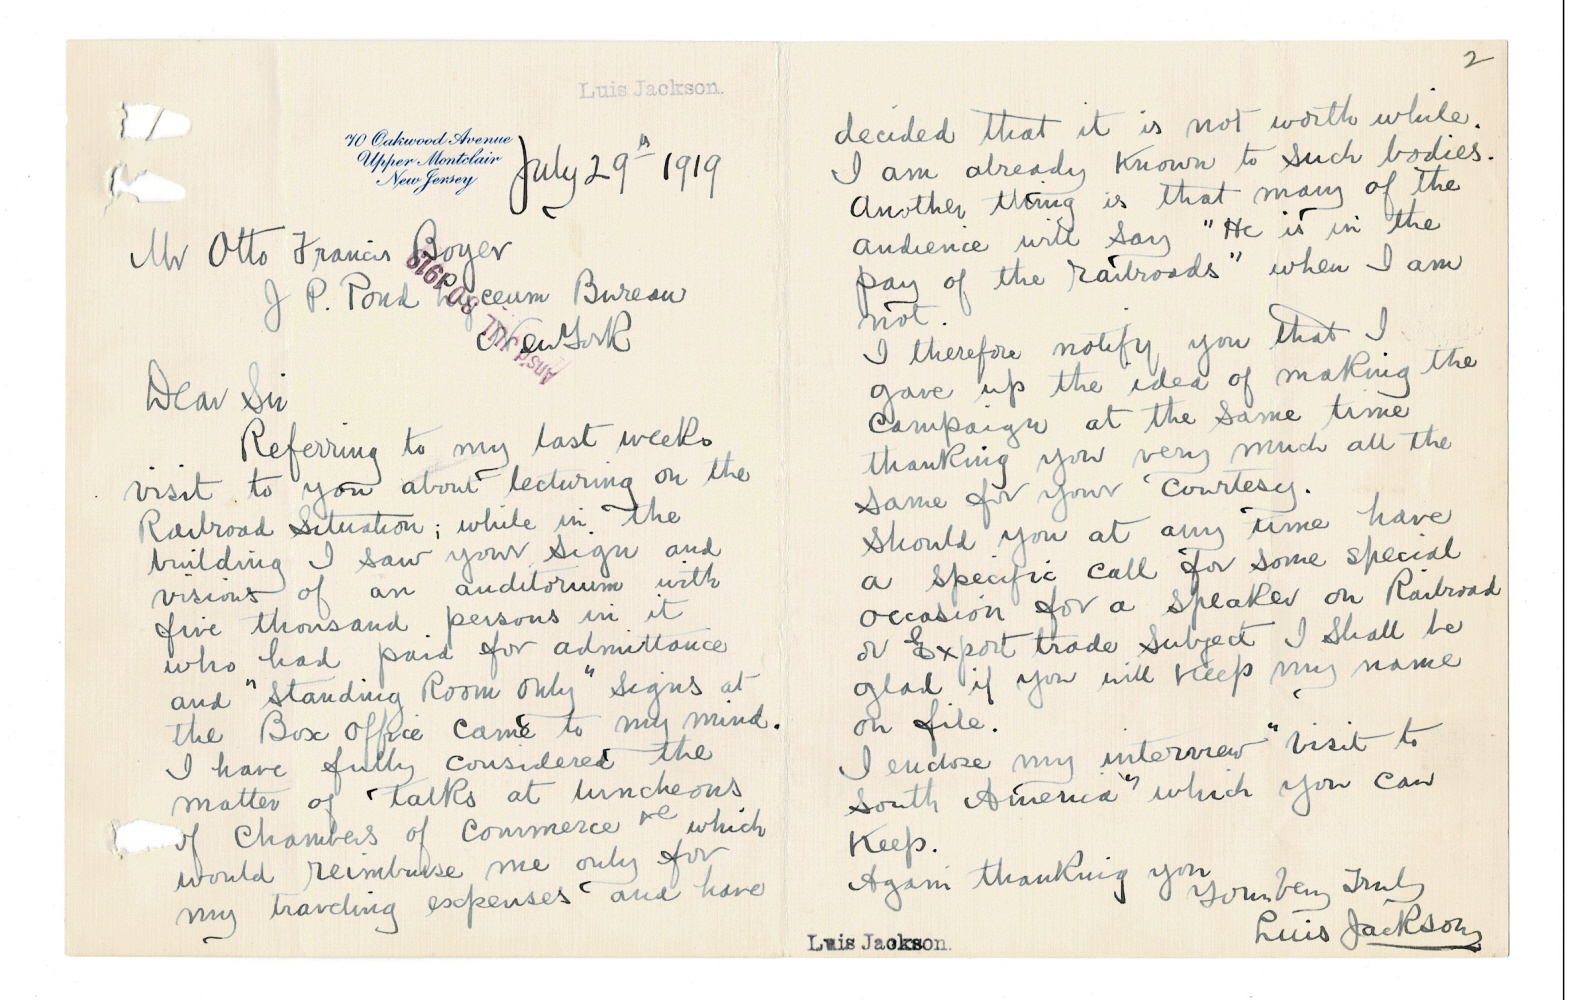 Luis Jackson.
70 Oakwood Avenue
Upper Montclair
New Jersey
July 29th 1919
Mr Otto Francis Boyer
J P. Pond Lyceum Bureau
New York
Ansd JUL 30 1919
Dear Sir
Referring to my last weeks
visit to you about lecturing on the
Railroad Situation; while in the
building I saw your sign and
visions of an auditorium with
five thousand persons in it
who had paid for admittance
and "Standing Room only" signs at
the Box Office came to my mind.
I have fully considered the
matter of talks at luncheons
of Chambers of Commerce &c which
would reimburse me only for
my traveling expenses and have
2
decided that it is not worth while.
I am already known to such bodies.
Another thing is that many of the
audience will say "He is in the
pay of the railroads" when I am
not.
I therefore notify you that I
gave up the idea of making the
campaign at the same time
thanking you very much all the
same for your courtesy.
Should you at any time have
a specific call for some special
occasion for a speaker on Railroad
or Export trade subject I shall be
glad if you will keep my name
on file.
I enclose my interview "visit to
South America" which you can
keep.
Again thanking you
Yours very Truly
Luis Jackson
Luis Jackson.